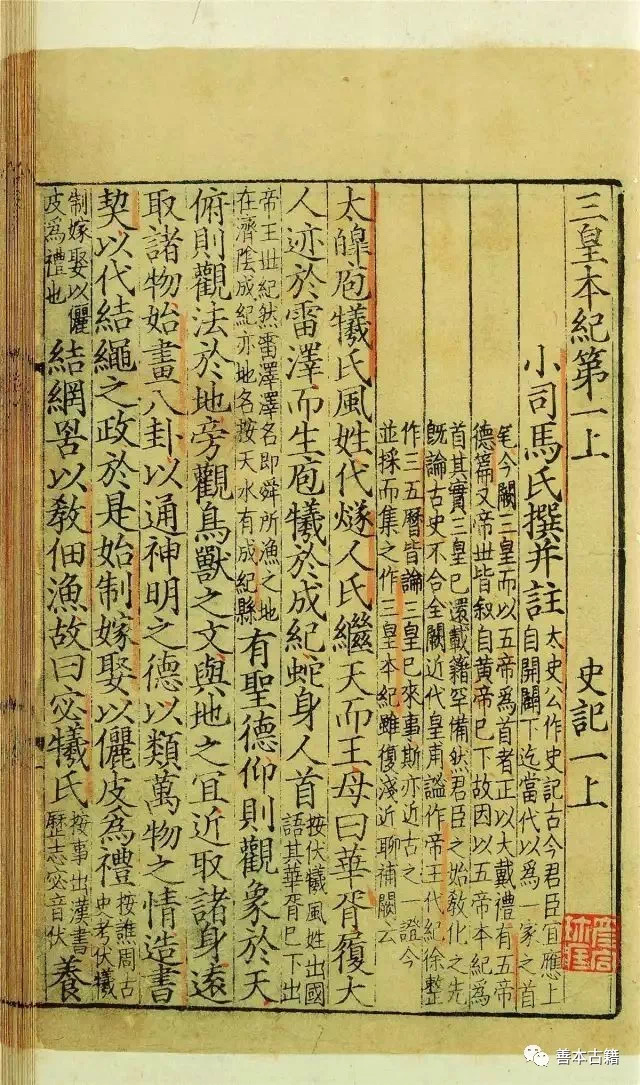 三皇本紀第一上 史記一上
小司馬氏撰并註 太史公作史記古今君臣宜應上
自開闢下迄當代以為一家之首
尾今闕三皇而以五帝為首者正以大戴禮有五帝
德篇又帝世皆敘自黃帝已下故因以五帝本紀為
首其實三皇已還載籍罕備然君臣之始教化之先
既論古史不合全闕近代皇甫謐作帝王代紀徐整
作三五曆皆論三皇已來事斯亦近古之一證今
並採而集之作三皇本紀雖復淺近聊補闕云
太皡庖犧氏風姓代燧人氏繼天而王母曰華胥履大
人迹於雷澤而生庖犧於成紀蛇身人首 按伏犧風姓出國
語其華胥已下出
帝王世紀然雷澤澤名即舜所漁之地
在濟陰成紀亦地名按天水有成紀縣 有聖德仰則觀象於天
俯則觀法於地旁觀鳥獸之文與地之宜近取諸身遠
取諸物始畫八卦以通神明之德以類萬物之情造書
契以代結繩之政於是始制嫁娶以儷皮為禮 按譙周古
史考伏犧
制嫁娶以儷
皮為禮也 結網罟以教佃漁故曰宓犧氏 按事出漢書
歷志宓音伏 養
善本古籍